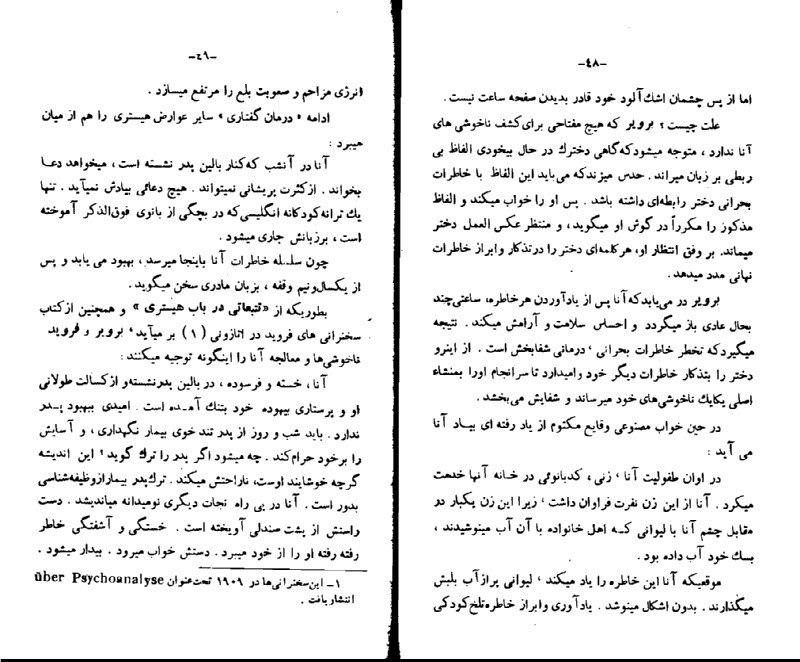 -٤٨-
اما از پس چشمان اشك آلود خود قادر بدیدن صفحه ساعت نیست.
علت چیست؟ برویر که هیچ مفتاحی برای کشف ناخوشی های
آنا ندارد، متوجه میشود که گاهی دخترك در حال بیخودی الفاظ بی
ربطی بر زبان میراند. حدس میزند که می باید این الفاظ با خاطرات
بحرانی دختر رابطه ای داشته باشد. پس او را خواب میکند و الفاظ
مذکور را مکرراً در گوش او میگوید، و منتظر عکس العمل دختر
میماند. بر وفق انتظار او، هر کلمه ای دختر را در تذکار و ابراز خاطرات
نهانی مدد میدهد.
برویر در می یابد که آنا پس از یادآوردن هر خاطره، ساعتی چند
بحال عادی باز میگردد و احساس سلامت و آرامش میکند. نتیجه
میگیرد که تخطر خاطرات بحرانی، درمانی شفابخش است. از اینرو
دختر را بتذکار خاطرات دیگر خود وامیدارد تا سرانجام او را بمنشاء
اصلی یکایك ناخوشی های خود میرساند و شفایش می بخشد.
در حین خواب مصنوعی وقایع مکتوم از یاد رفته ای بیاد آنا
می آید:
در اوان طفولیت آنا، زنی، کدبانوئی در خانه آنها خدمت
میکرد. آنا از این زن نفرت فراوان داشت، زیرا این زن یکبار در
مقابل چشم آنا با لیوانی که اهل خانواده با آن آب مینوشیدند،
بسك خود آب داده بود.
موقعیکه آنا این خاطره را یاد میکند، لیوانی پر از آب بلبش
میگذارند. بدون اشکال مینوشد. یادآوری و ابراز خاطره تلخ کودکی
-٤٩-
انرژی مزاحم و صعوبت بلع را مرتفع میسازد.
ادامه «درمان گفتاری» سایر عوارض هیستری را هم از میان
میبرد:
آنا در آنشب که کنار بالین پدر نشسته است، میخواهد دعا
بخواند. از کثرت پریشانی نمیتواند. هیچ دعائی بیادش نمیآید. تنها
یك ترانه کودکانه انگلیسی که در بچگی از بانوی فوق الذکر آموخته
است، برزبانش جاری میشود.
چون سلسله خاطرات آنا باینجا میرسد، بهبود می یابد و پس
از یکسال ونیم وقفه، بزبان مادری سخن میگوید.
بطوریکه از «تتبعاتی در باب هیستری» و همچنین از کتاب
سخنرانی های فروید در اتازونی (۱) بر میآید، برویر و فروید
ناخوشی ها و معالجه آنا را اینگونه توجیه میکنند:
آنا، خسته و فرسوده، در بالین پدر نشسته و از کسالت طولانی
او و پرستاری بیهوده خود بتنك آمده است. امیدی ببهبود پدر
ندارد. باید شب و روز از پدر تند خوی بیمار نگهداری، و آسایش
را برخود حرام کند. چه میشود اگر پدر را ترك گوید؟ این اندیشه
گرچه خوشایند اوست، ناراحتش میکند. ترك پدر بیمار از وظیفه شناسی
بدور است. آنا در پی راه نجات دیگری نومیدانه میاندیشد. دست
راستش از پشت صندلی آویخته است. خستگی و آشفتگی خاطر
رفته رفته او را از خود میبرد. دستش خواب میرود. بیدار میشود.
۱- این سخنرانی ها در ۱۹۰۹ تحت عنوان über Psychoanalyse
انتشار یافت.